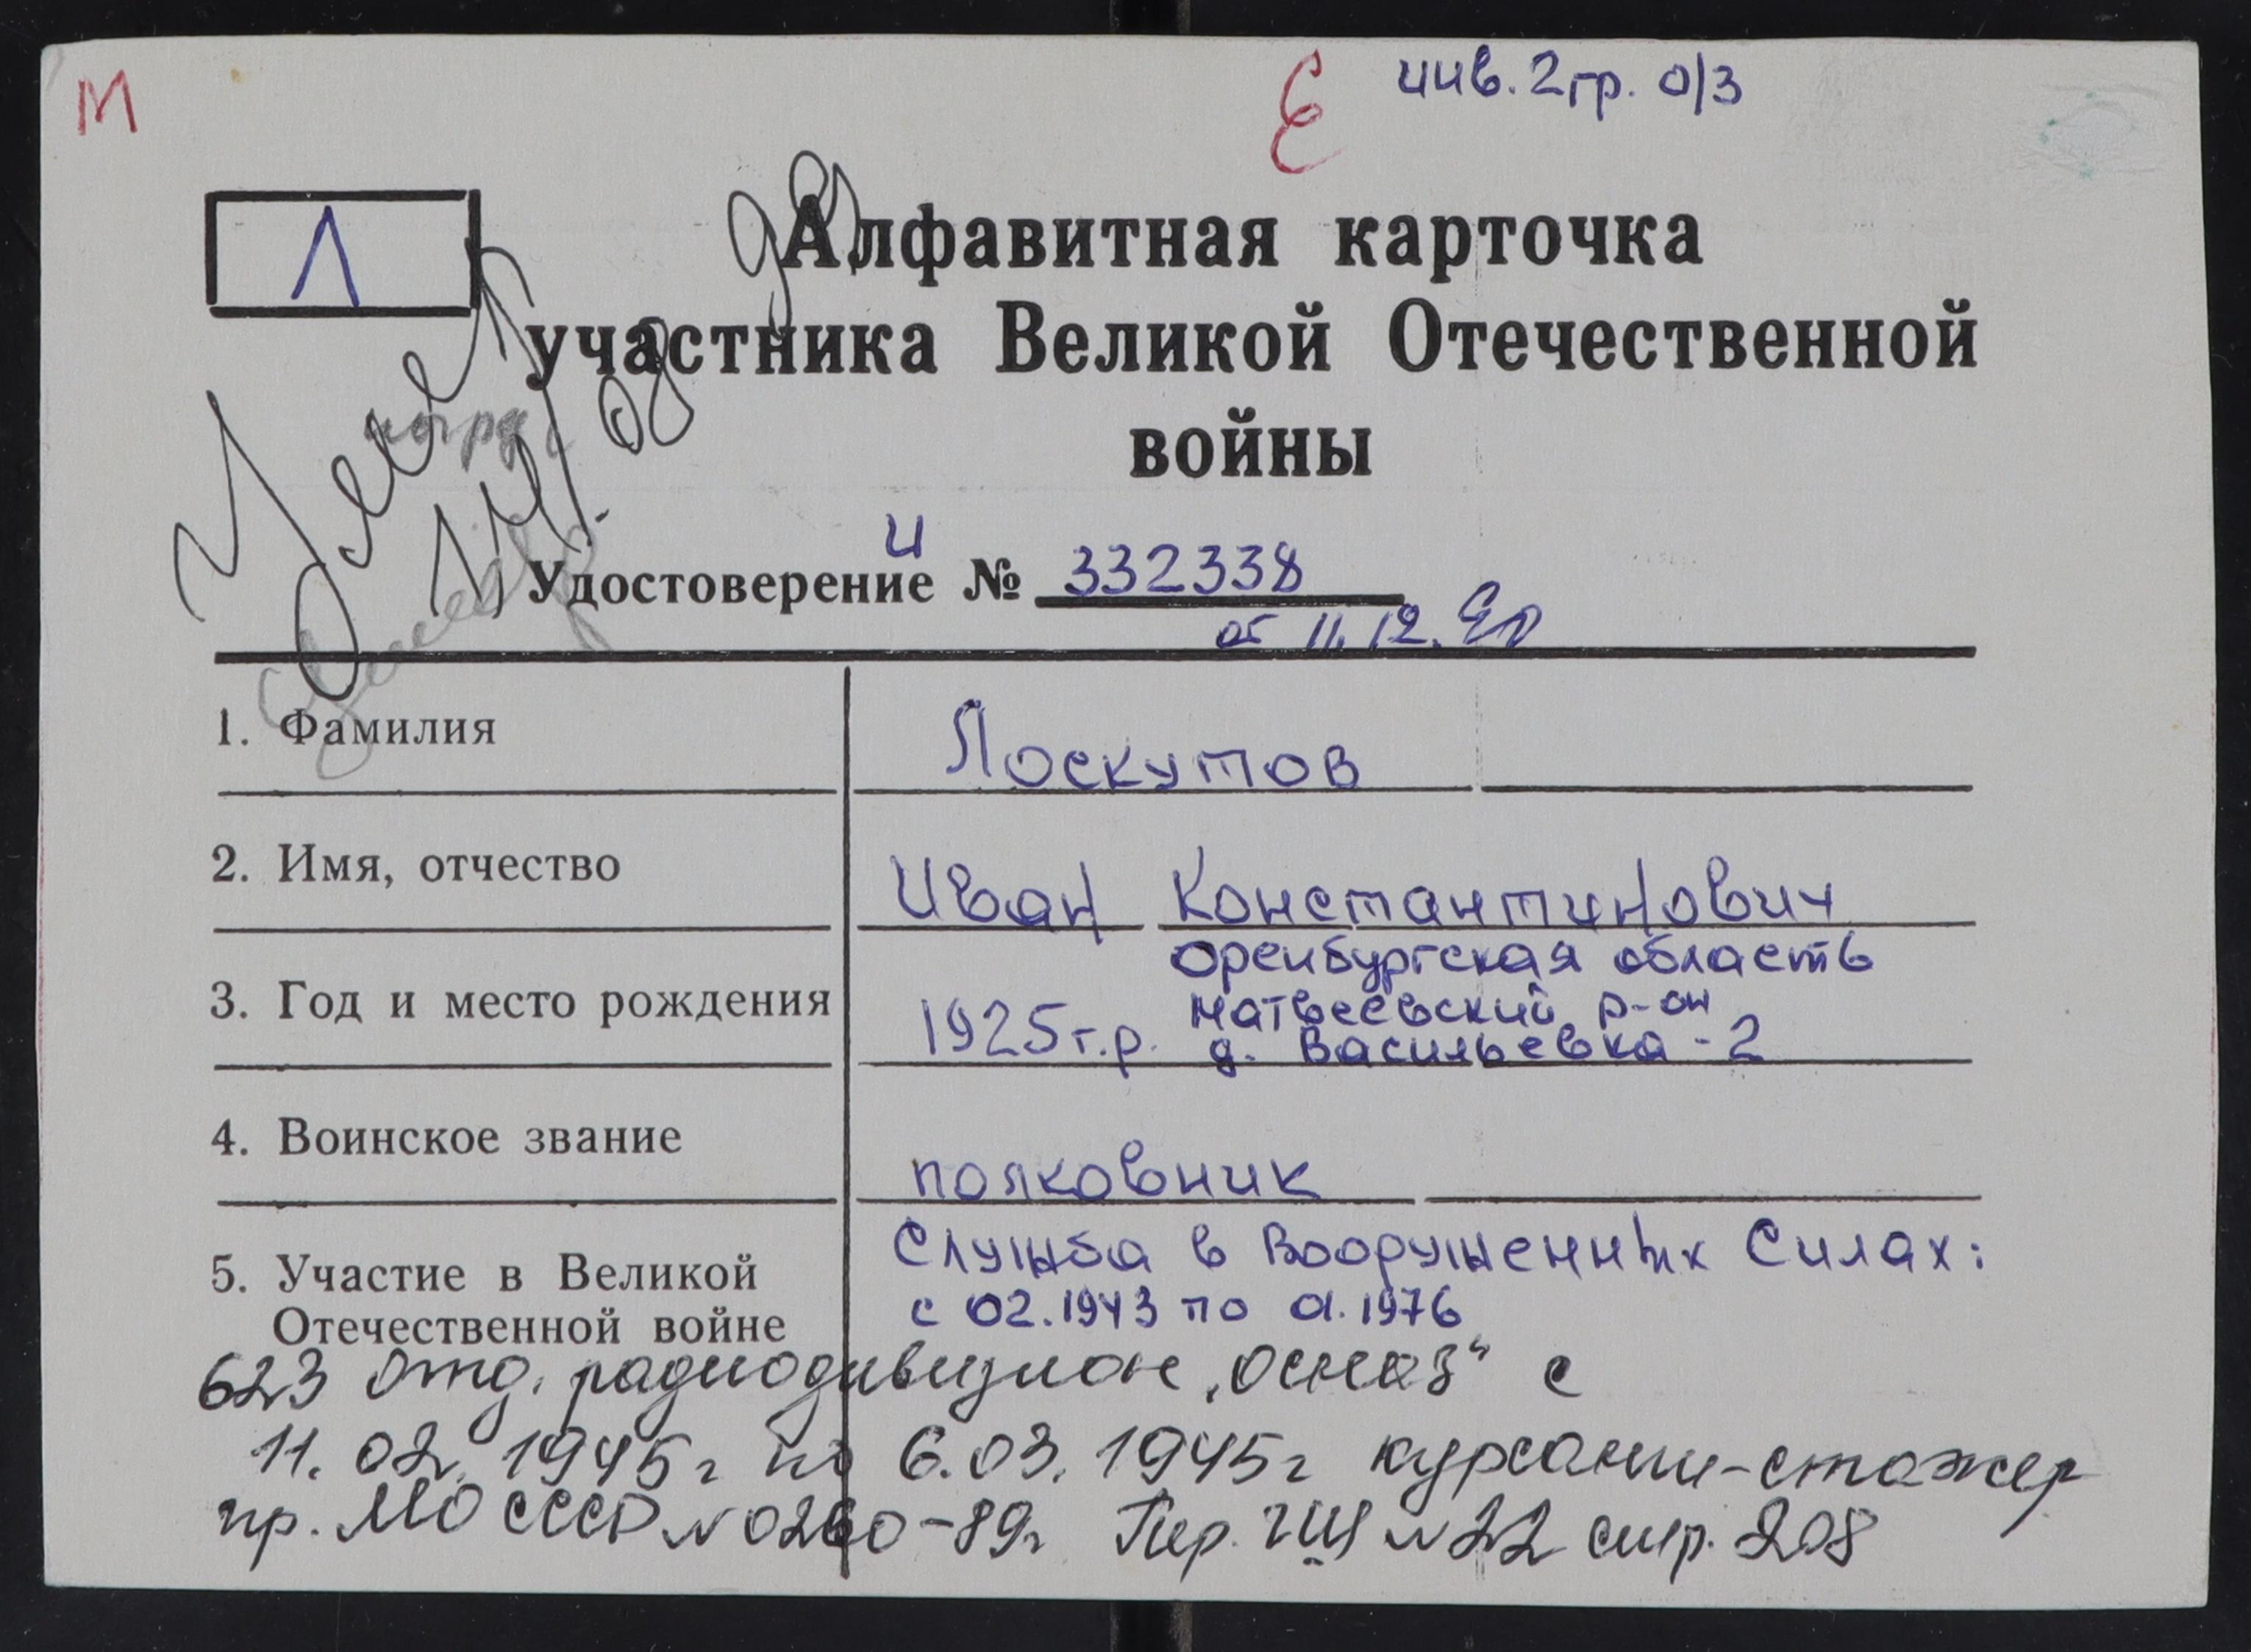 М
Е инв. 2 гр. о/з
Л
Алфавитная карточка
участника Великой Отечественной
войны
Умер
08
И
Удостоверение № 332338
от 11.12.
1. Фамилия Лоскутов
2. Имя, отчество Иван Константинович
Оренбургская область
Матвеевский р-он
3. Год и место рождения 1925 г.р. д. Васильевка-2
4. Воинское звание полковник
Служба в Вооруженных Силах:
5. Участие в Великой с 02.1943 по 01.1976
Отечественной войне
623 отд. радиодивизион „ОСНАЗ“ с
11.02.1945г по 6.03.1945г курсант-стажер
пр. МО СССР № 0260-89г Пер. ГШ № 22 стр. 208